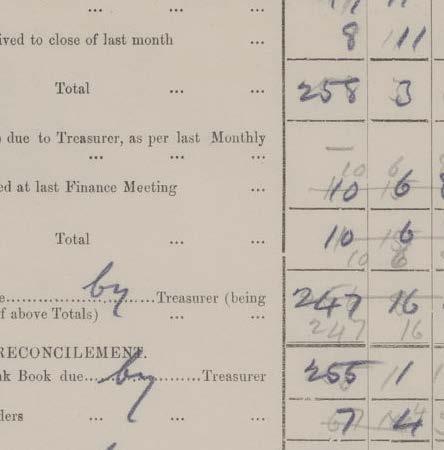 ... ... ...
ived to close of last month ... 8 11
Total ... ... 258 3
due to Treasurer, as per last Monthly
... ... ... —
ed at last Finance Meeting ... 10 6
Total ... ... 10 6
10 6
e..........by..........Treasurer (being 247 16
f above Totals) ... ... 247 16
RECONCILEMENT.
nk Book due....by..........Treasurer 255 1
ders ... ... ... 7 4